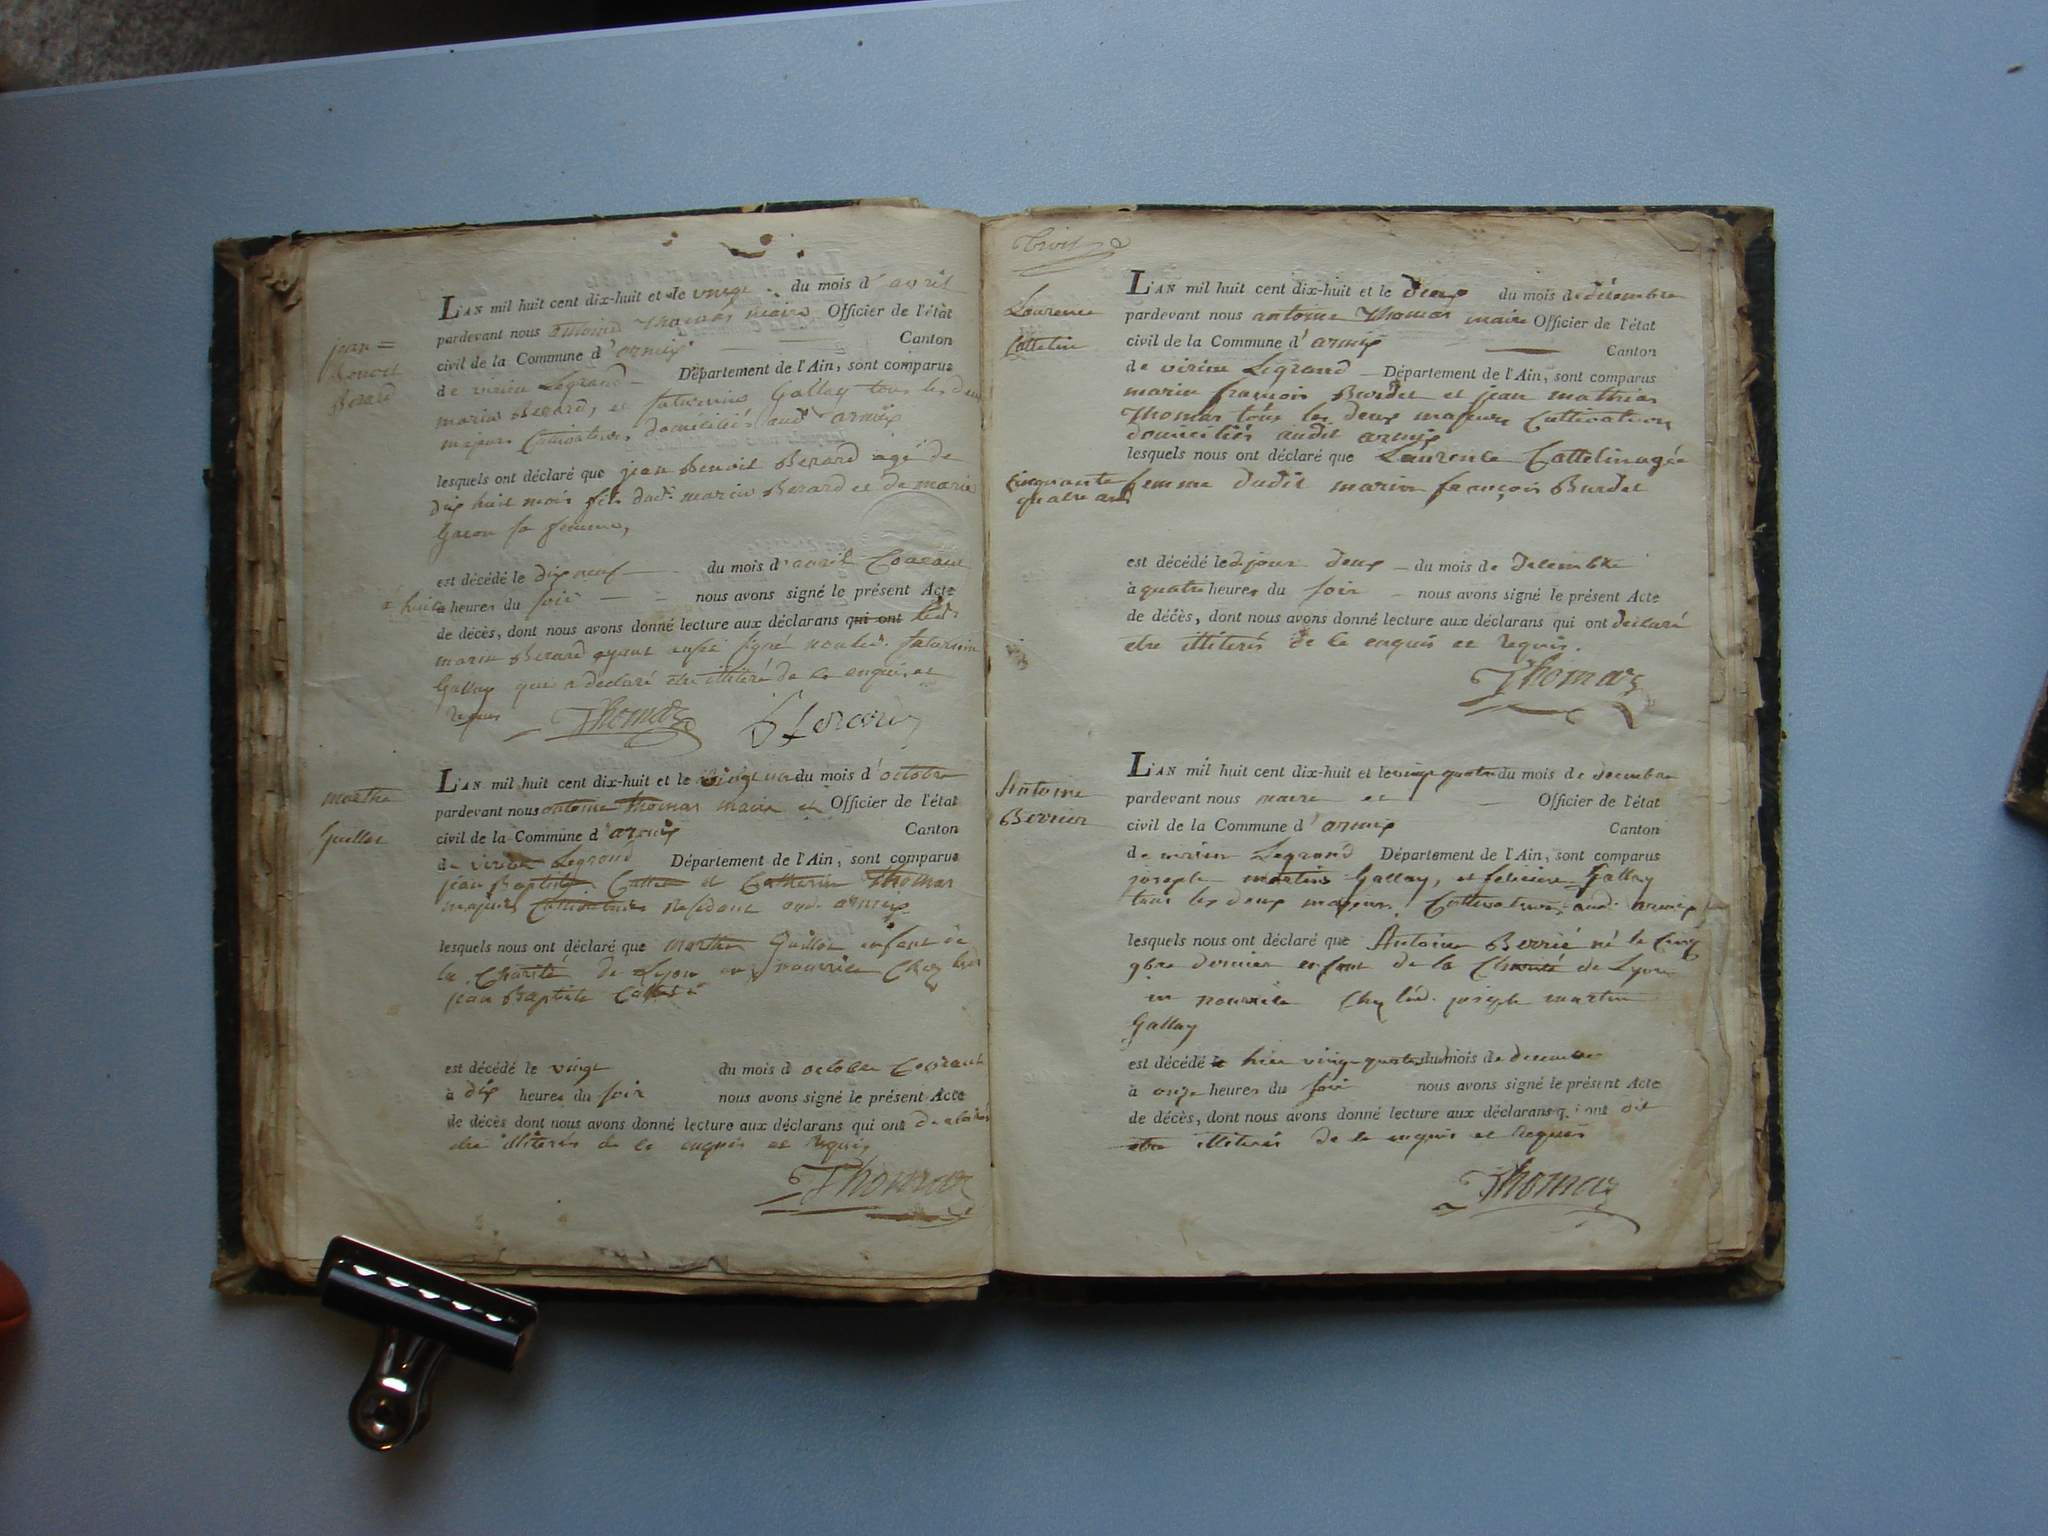 jean =
Benoit
Berard
L'AN mil huit cent dix-huit et le vingt du mois d'avril
pardevant nous antoine Thomas maire Officier de l'état
civil de la Commune d'armix Canton
de virieu Legrand Département de l'Ain, sont comparus
marin Berard, et saturnin Gallay tous les deux
majeurs Cultivateurs domiciliés aud. armix
lesquels nous ont déclaré que jean Benoit Berard agé de
dix huit mois fils dud. marin Berard et de marie
sa femme,
est décédé le dix neuf du mois d'avril Courant
à huit heures du soir nous avons signé le présent Acte
de décès, dont nous avons donné lecture aux déclarans qui ont led.
marin Berard ayant signé non led. saturnin
Gallay qui a déclaré etre illiteré de ce enquis et
requis Thomas Berard
marthe
Guillot
L'AN mil huit cent dix-huit et le vingt un du mois d'octobre
pardevant nous antoine Thomas maire et Officier de l'état
civil de la Commune d'armix Canton
de virieu Legrand Département de l'Ain, sont comparus
jean Baptiste et Catherin Thomas
majeurs Cultivateurs residant aud. armix
lesquels nous ont déclaré que marthe Guillot enfant de
la Charité de Lyon en nourrice chez led.
jean Baptiste
est décédé le vingt du mois d octobre Courant
à dix heures du soir nous avons signé le présent Acte
de décès dont nous avons donné lecture aux déclarans qui ont declaré
etre illiterés de ce enquis et requis,
Thomas
Trois
Laurence
Cattelin
L'AN mil huit cent dix-huit et le deux du mois de décembre
pardevant nous antoine Thomas maire Officier de l'état
civil de la Commune d'armix Canton
de virieu Legrand Département de l'Ain, sont comparus
marin françois Burdet et jean mathias
Thomas tous les deux majeurs Cultivateurs
domiciliés audit armix
lesquels nous ont déclaré que Laurence Cattelin agée
cinquante femme dudit marin françois Burdet
quatre ans
est décédé le djour deux du mois de decembre
à quatre heures du soir nous avons signé le présent Acte
de décès, dont nous avons donné lecture aux déclarans qui ont declaré
etre illiterés de ce enquis et requis.
Thomas
Antoine
Berrier
L'AN mil huit cent dix-huit et le vingt quatre du mois de decembre
pardevant nous maire et Officier de l'état
civil de la Commune d'armix Canton
de virieu Legrand Département de l'Ain, sont comparus
joseph martin Gallay, et Gallay
tous les deux majeurs Cultivateurs aud. armix
lesquels nous ont déclaré que Antoine Berrié né le cinq
9bre dernier enfant de la Charité de Lyon
en nourrice chez led. joseph martin
Gallay
est décédé le hier vingt quatre du mois de decembre
à onze heures du soir nous avons signé le présent Acte
de décès, dont nous avons donné lecture aux déclarans qui ont dit
etre illiterés de ce enquis et requis
Thomas